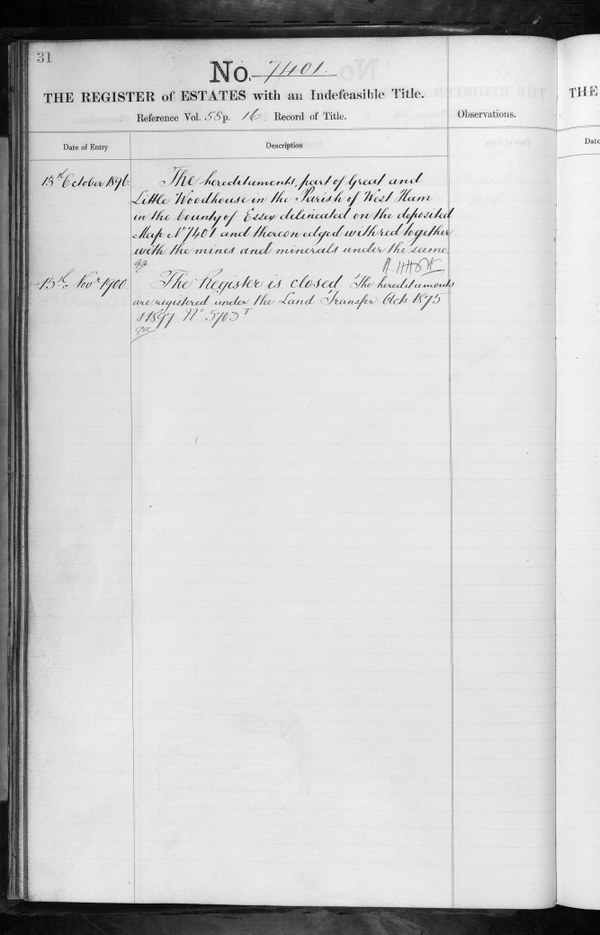 31
No. 7401.
THE REGISTER of ESTATES with an Indefeasible Title.
Reference Vol. 58 p. 16 Record of Title.
Observations.
THE
Date of Entry
Description
Date
13th October 1896
The hereditaments, part of Great and
Little Woodhouse in the Parish of West Ham
in the County of Essex delineated on the deposited
Map No 7401 and thereon edged with red together
with the mines and minerals under the same.
15th Novr 1900
The Register is closed. The hereditaments
are registered under the Land Transfer Acts 1875
& 1897 No 5703